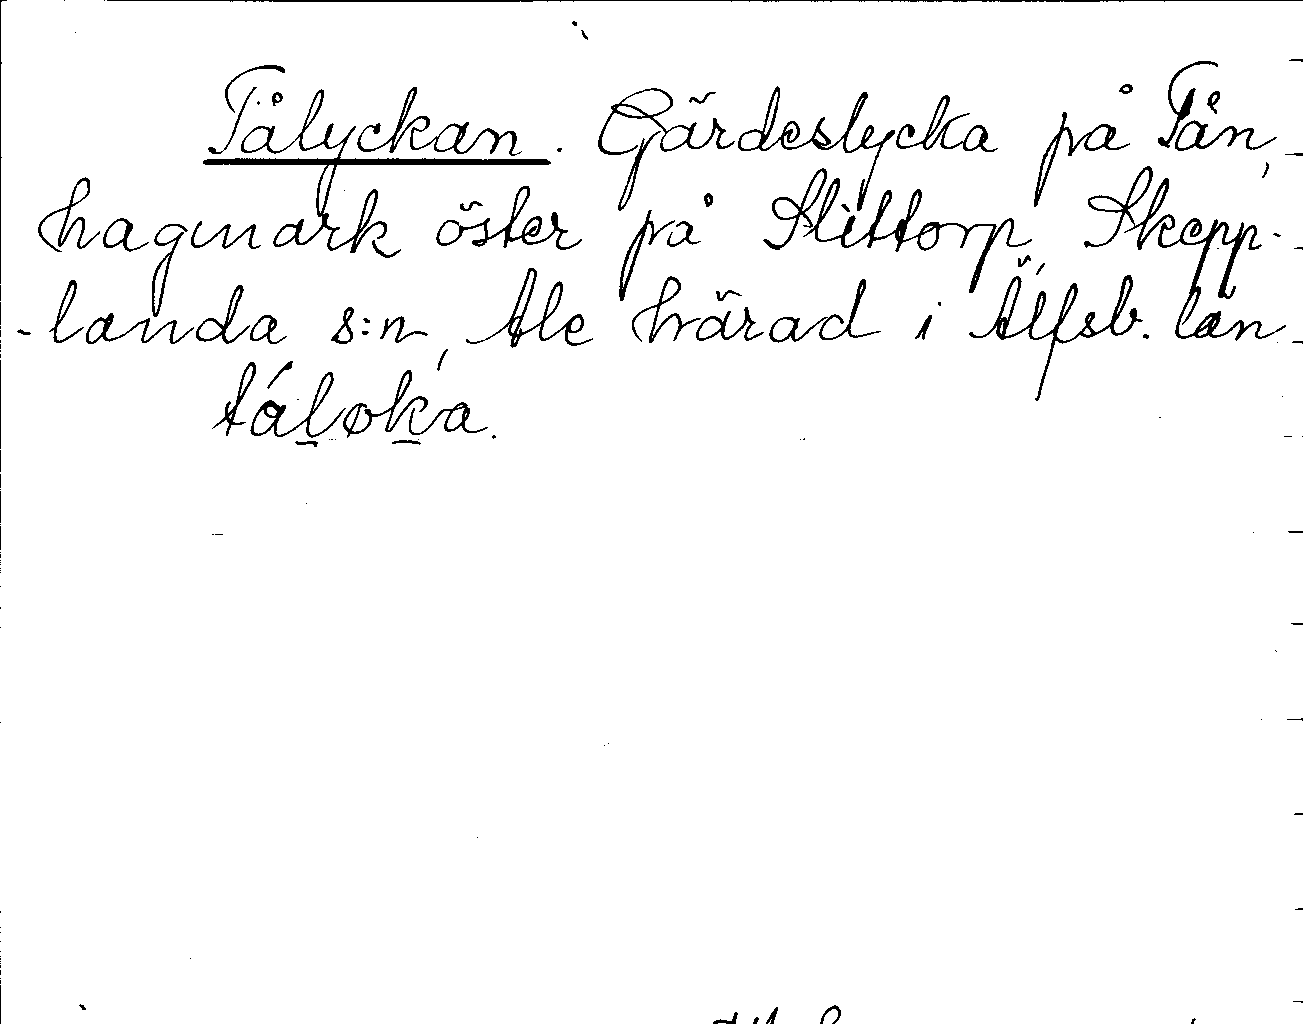 Tålyckan. Gärdeslycka på Tån,
hagmark öster på Slittorp, Skepp-
-landa s:n, Ale härad i Älfsb. län
táløka.